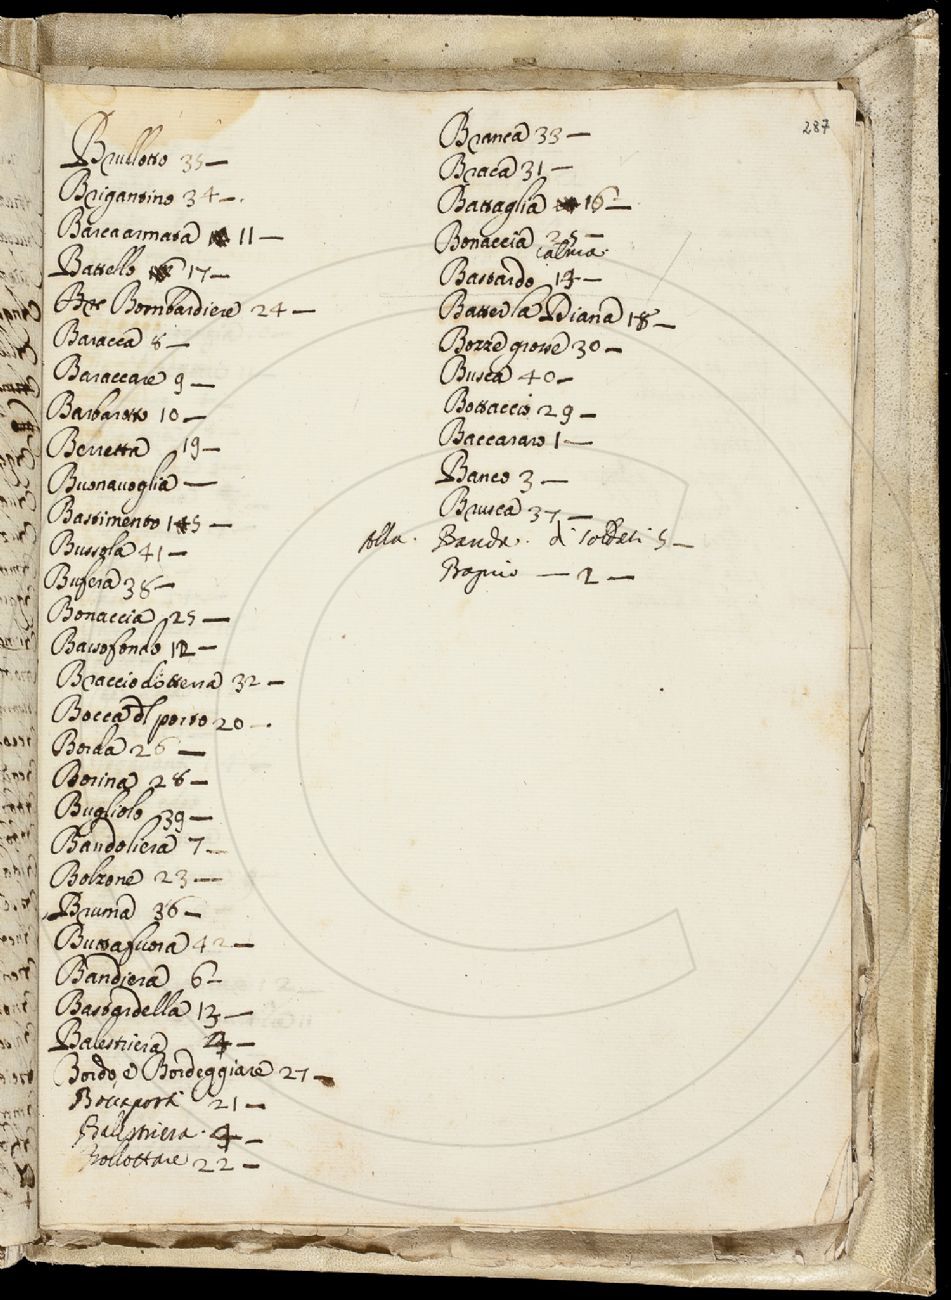 287
Brullotto 35 —
Brigantino 34 —.
Barca armata 11 —
Battello 17 —
Bombardiere 24 —
Baracca 8 —
Baraccare 9 —
Barbarotto 10 —
Berretta 19 —
Buonauoglia —
Bastimento 15 —
Bussola 41 —
Bufera 38 —
Bonaccia 25 —
Bassofondo 12 —
Braccio di terra 32 —
Bocca dl porto 20 —.
Borda 26 —
Borina 28 —
Bugliolo 39 —
Bandoliera 7 —
Bolzone 23 —
Bruma 36 —
Buttafuora 42 —
Bandiera 6 —
Bastardella 13 —
Balestriera 4 —
Bordo, e Bordeggiare 27 —
Boccaporti 21 —
Balestriera. 4 —
Bollottare 22 —
Branca 33 —
Braca 31 —
Battaglia 16 —
Bonaccia 25 —
calma
Bastardo 14 —
Batter la Diana 18 —
Bozze grosse 30 —
Busca 40 —
Bottaccio 29 —
Baccararo 1 —
Banco 3 —
Brusca 37 —
Alla. Banda. di soldati 5 —
Bagnio — 2 —